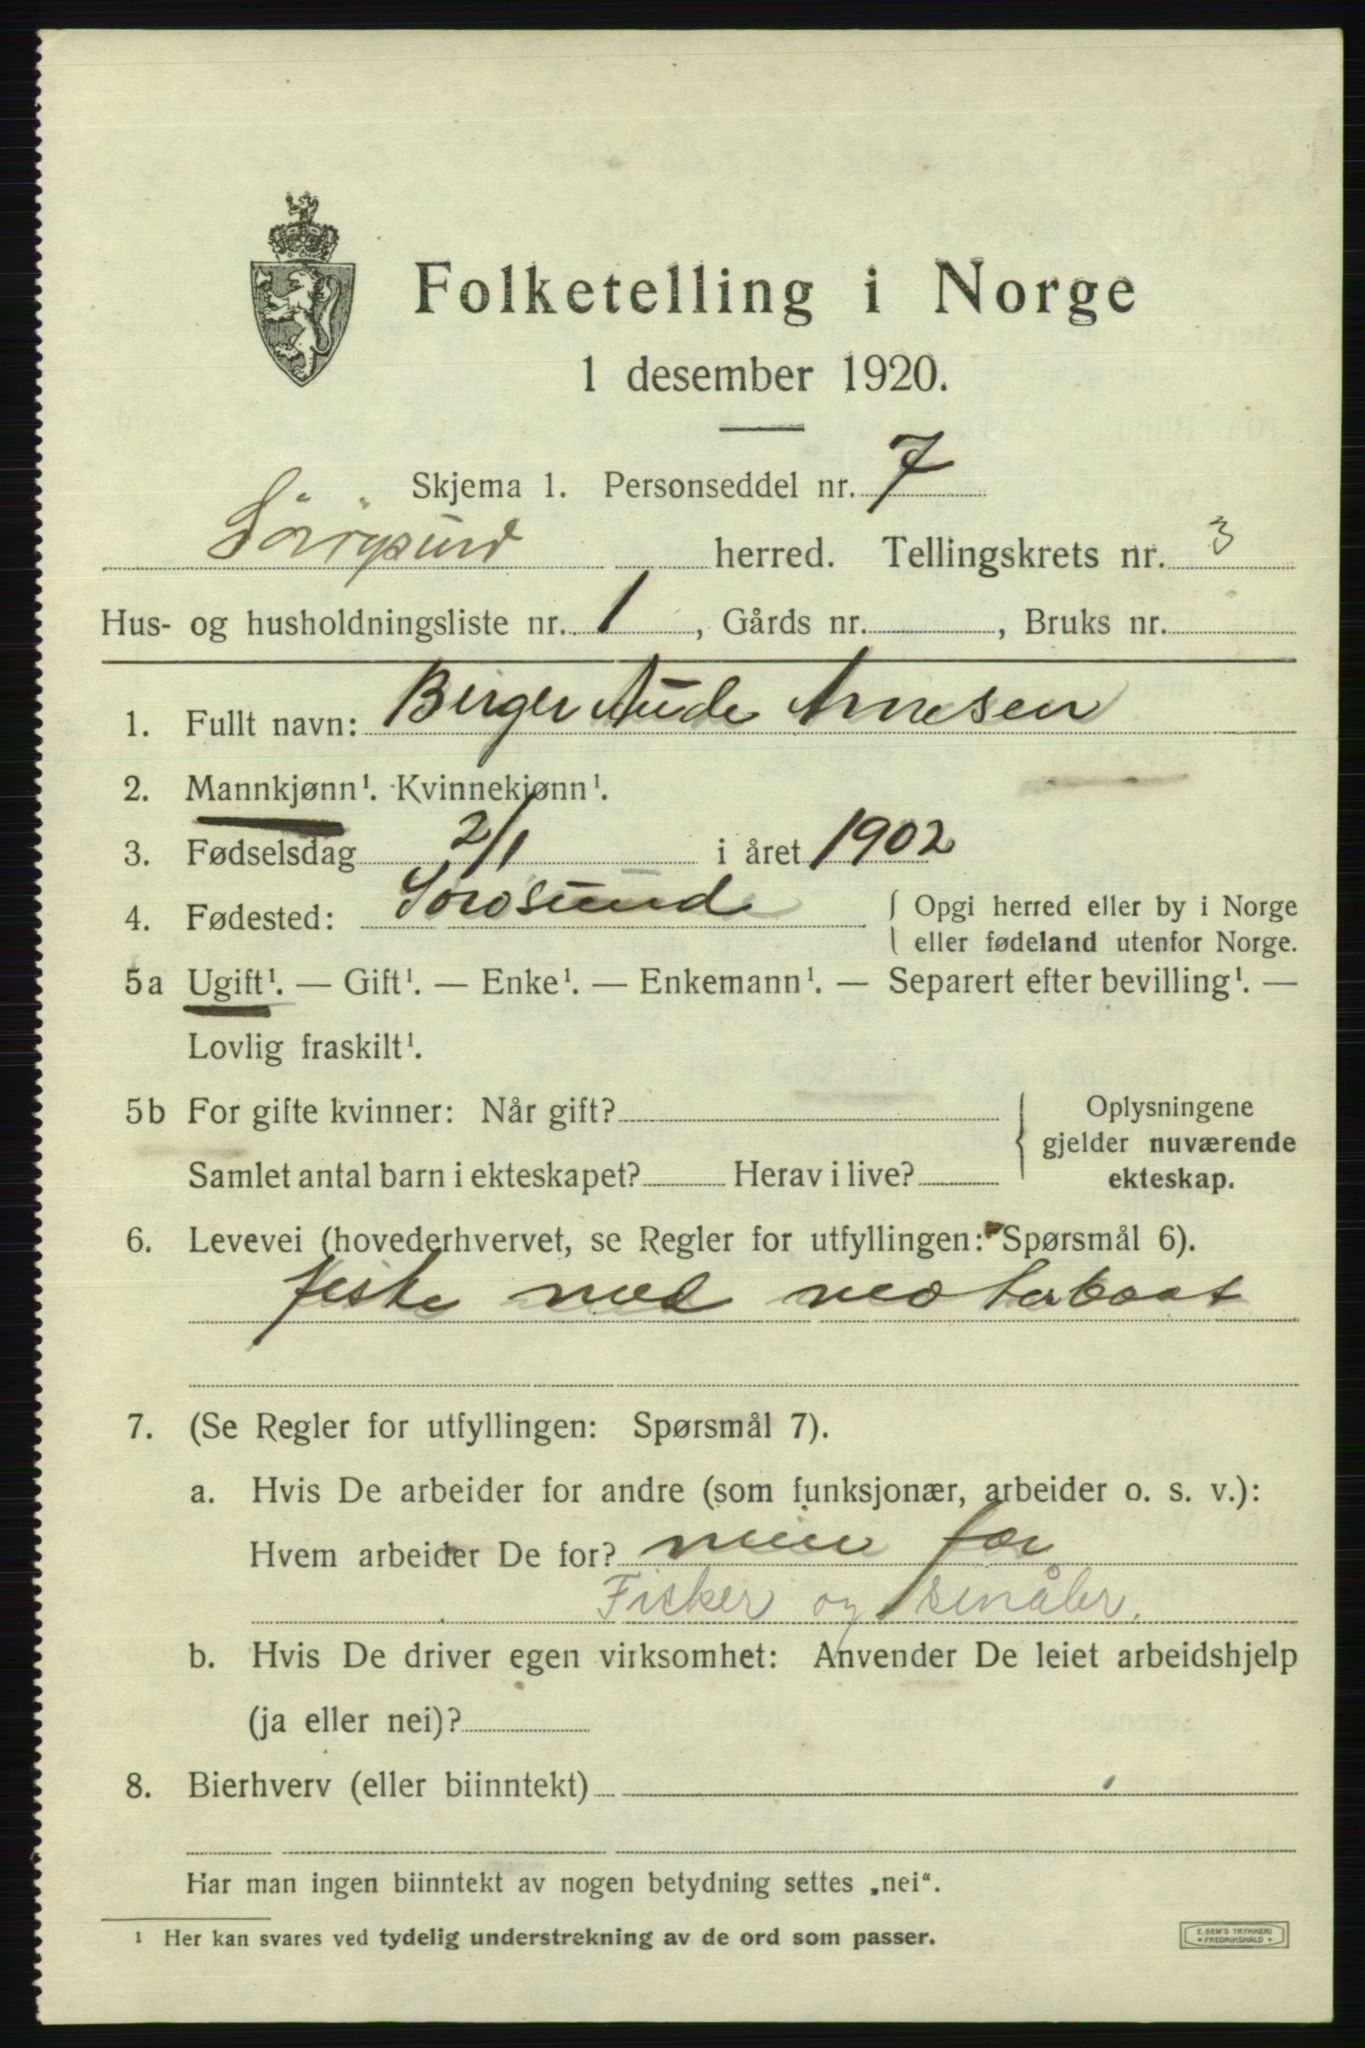 Folketelling i Norge
1 desember 1920.
Skjema 1. Personseddel nr. 7
Sörøysund herred. Tellingskrets nr. 3
Hus- og husholdningsliste nr. 1, Gårds nr. , Bruks nr.
1. Fullt navn: Birger Aude Arnesen
2. Mannkjønn¹. Kvinnekjønn¹.
3. Fødselsdag 2/1 i året 1902
4. Fødested: Sørøsund { Opgi herred eller by i Norge
eller fødeland utenfor Norge.
5a Ugift¹. — Gift¹. — Enke¹. — Enkemann¹. — Separert efter bevilling¹. —
Lovlig fraskilt¹.
5b For gifte kvinner: Når gift? { Oplysningene
gjelder nuværende
Samlet antal barn i ekteskapet? Herav i live? ekteskap.
6. Levevei (hovederhvervet, se Regler for utfyllingen: Spørsmål 6).
fiske med motorbaat
7. (Se Regler for utfyllingen: Spørsmål 7).
a. Hvis De arbeider for andre (som funksjonær, arbeider o. s. v.):
Hvem arbeider De for? min far
Fisker og småbr.
b. Hvis De driver egen virksomhet: Anvender De leiet arbeidshjelp
(ja eller nei)?
8. Bierhverv (eller biinntekt)
Har man ingen biinntekt av nogen betydning settes „nei“.
¹ Her kan svares ved tydelig understrekning av de ord som passer.
E. SEM'S TRYKKERI
* FREDRIKSHALD *